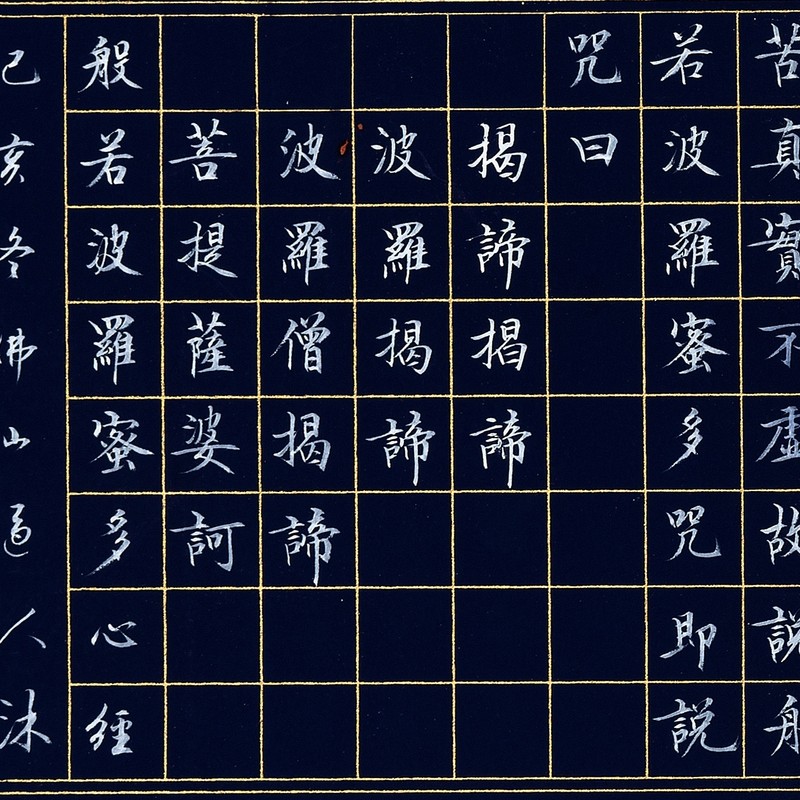 苦真實不虛故說般
若波羅蜜多咒即說
咒曰
揭諦揭諦
波羅揭諦
波羅僧揭諦
菩提薩婆訶
般若波羅蜜多心經
己亥冬佛山人沐